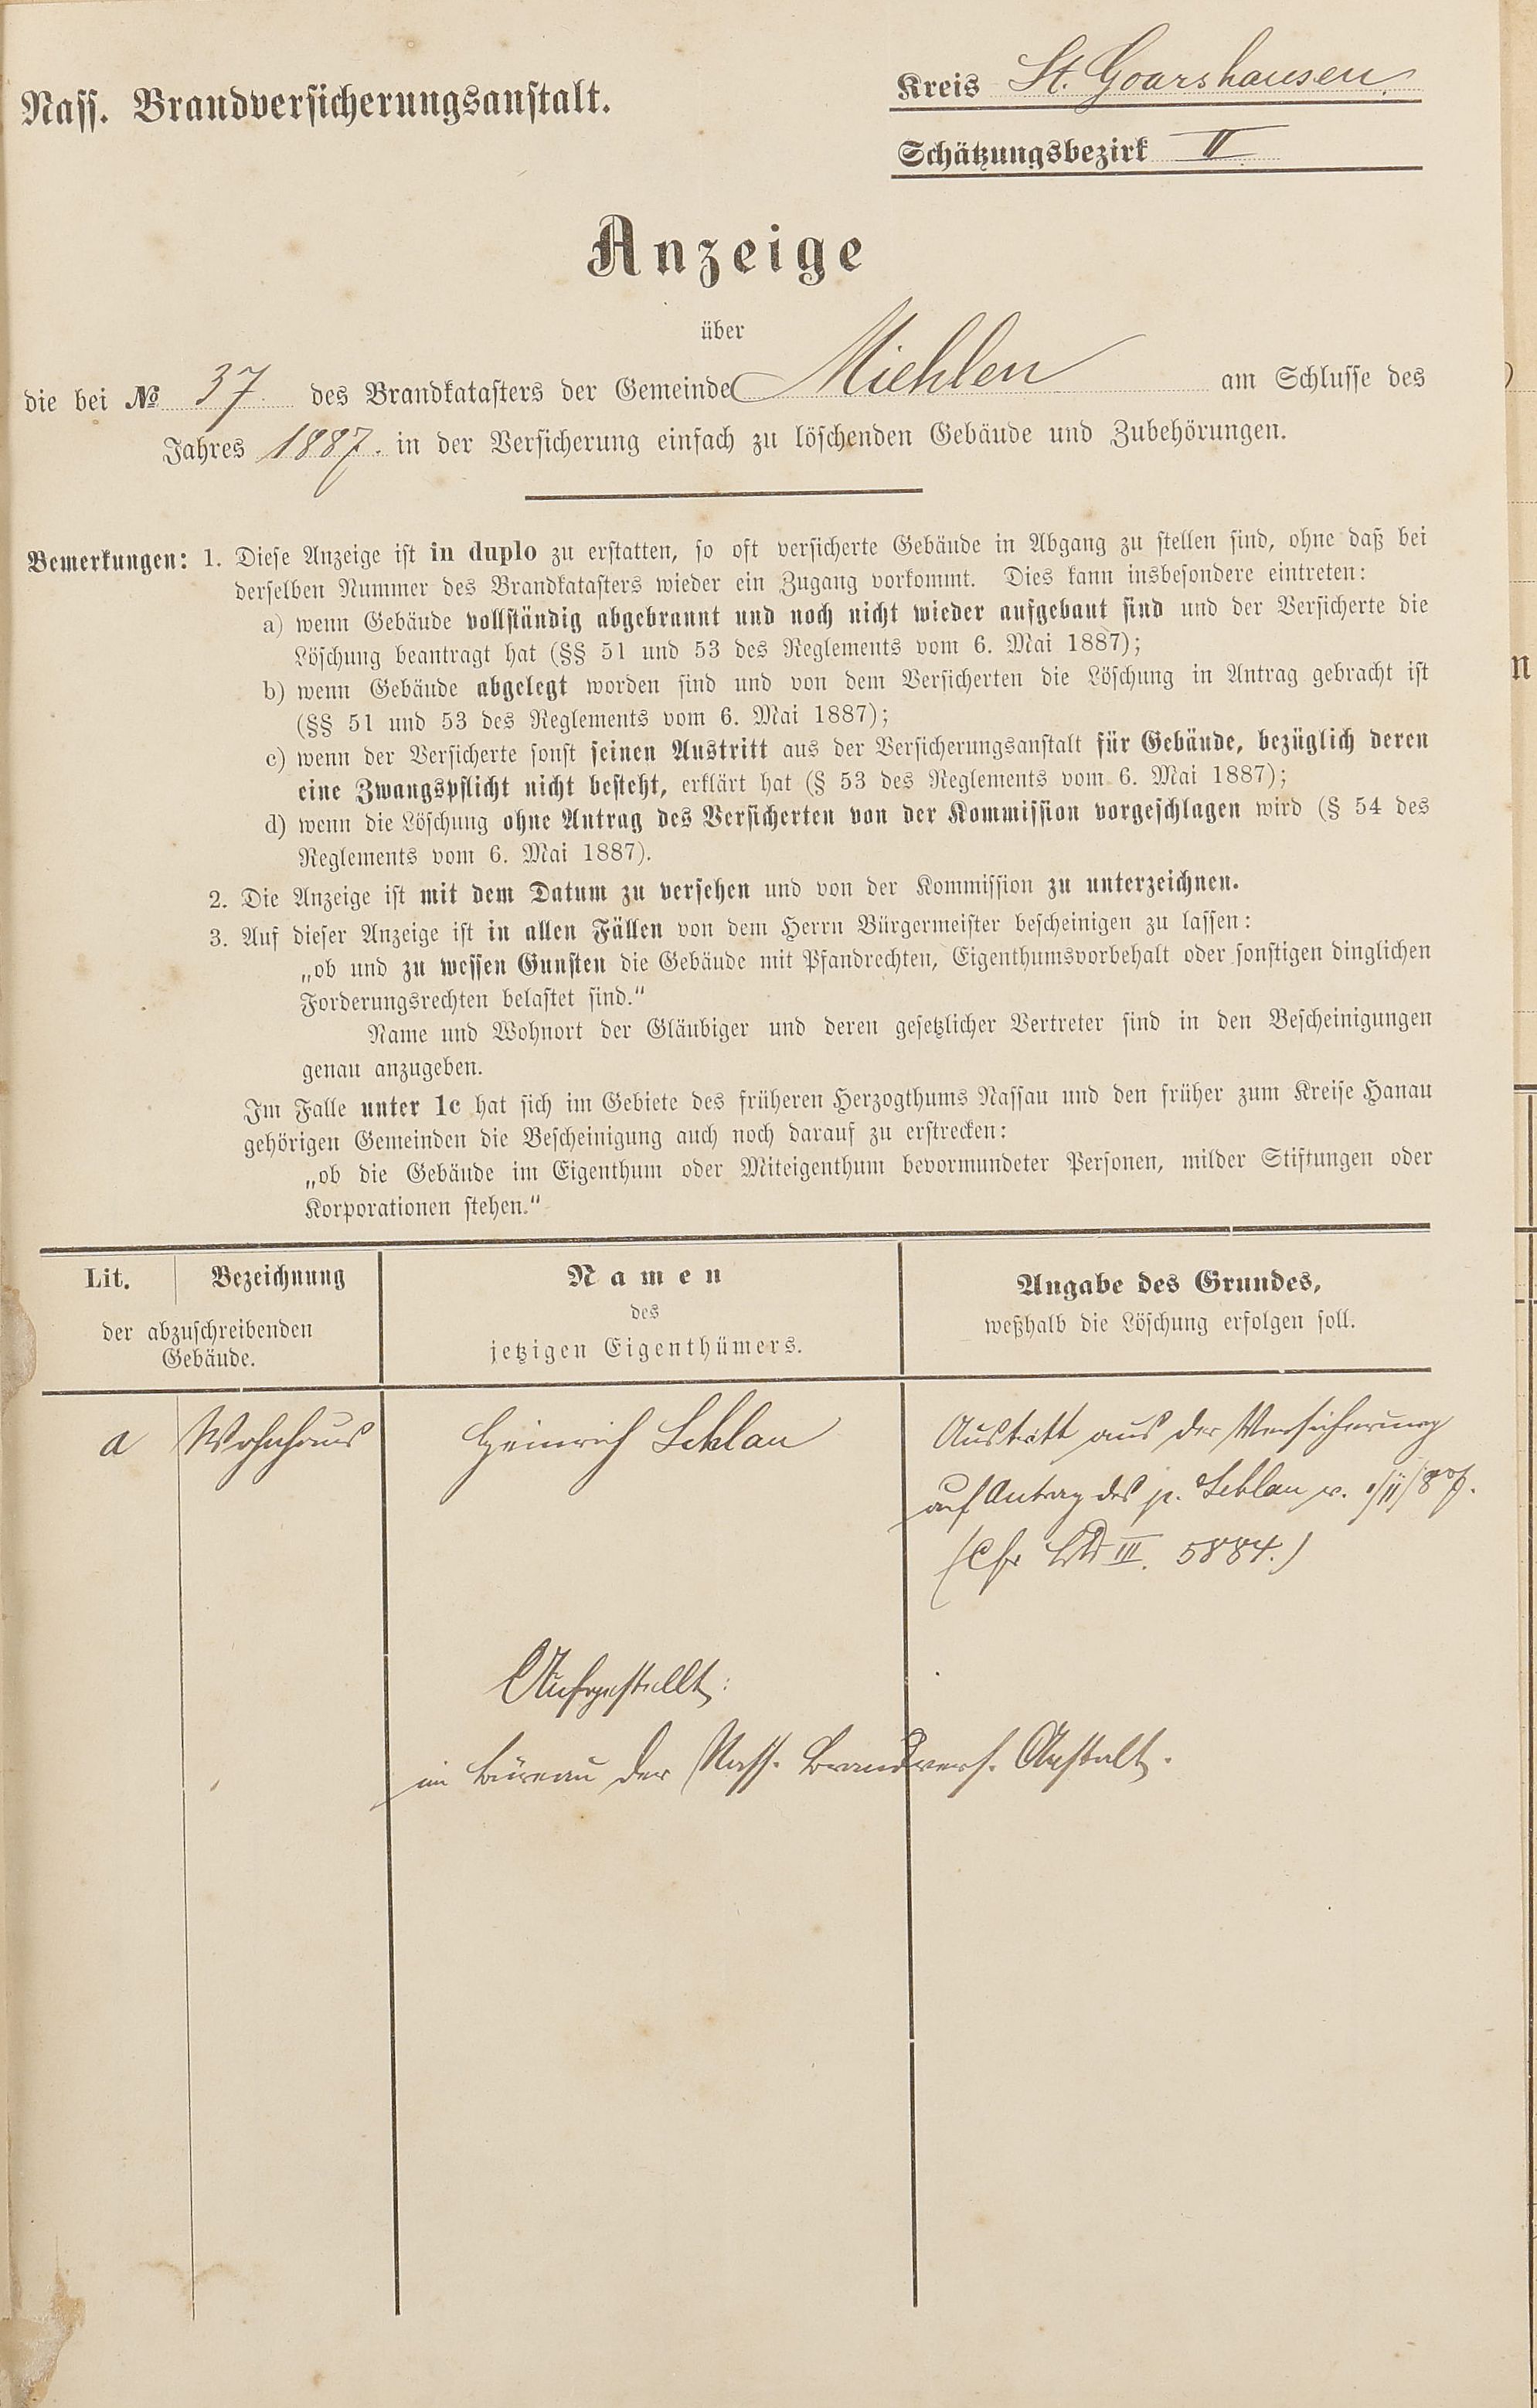 Nass. Brandversicherungsanstalt.
Kreis St. Goarshausen.
Schätzungsbezirk II.
Anzeige
über
die bei No 37 des Brandkatasters der Gemeinde Miehlen am Schlusse des
Jahres 1887. in der Versicherung einfach zu löschenden Gebäude und Zubehörungen.
Bemerkungen: 1. Diese Anzeige ist in duplo zu erstatten, so oft versicherte Gebäude in Abgang zu stellen sind, ohne daß bei
derselben Nummer des Brandkatasters wieder ein Zugang vorkommt. Dies kann insbesondere eintreten:
a) wenn Gebäude vollständig abgebrannt und noch nicht wieder aufgebaut sind und der Versicherte die
Löschung beantragt hat (§§ 51 und 53 des Reglements vom 6. Mai 1887);
b) wenn Gebäude abgelegt worden sind und von dem Versicherten die Löschung in Antrag gebracht ist
(§§ 51 und 53 des Reglements vom 6. Mai 1887);
c) wenn der Versicherte sonst seinen Austritt aus der Versicherungsanstalt für Gebäude, bezüglich deren
eine Zwangspflicht nicht besteht, erklärt hat (§ 53 des Reglements vom 6. Mai 1887);
d) wenn die Löschung ohne Antrag des Versicherten von der Kommission vorgeschlagen wird (§ 54 des
Reglements vom 6. Mai 1887).
2. Die Anzeige ist mit dem Datum zu versehen und von der Kommission zu unterzeichnen.
3. Auf dieser Anzeige ist in allen Fällen von dem Herrn Bürgermeister bescheinigen zu lassen:
„ob und zu wessen Gunsten die Gebäude mit Pfandrechten, Eigenthumsvorbehalt oder sonstigen dinglichen
Forderungsrechten belastet sind.“
Name und Wohnort der Gläubiger und deren gesetzlicher Vertreter sind in den Bescheinigungen
genau anzugeben.
Im Falle unter 1c hat sich im Gebiete des früheren Herzogthums Nassau und den früher zum Kreise Hanau
gehörigen Gemeinden die Bescheinigung auch noch darauf zu erstrecken:
„ob die Gebäude im Eigenthum oder Miteigenthum bevormundeter Personen, milder Stiftungen oder
Korporationen stehen.“
Lit. Bezeichnung
der abzuschreibenden
Gebäude.
Namen
des
jetzigen Eigenthümers.
Angabe des Grundes,
weßhalb die Löschung erfolgen soll.
a Wohnhaus Heinrich Schlau Austritt aus der Versicherung
auf Antrag des p. Schlau v.
(Cfr III. 5884.)
Aufgestellt:
im Büreau der Nass. Brandvers. Anstalt.